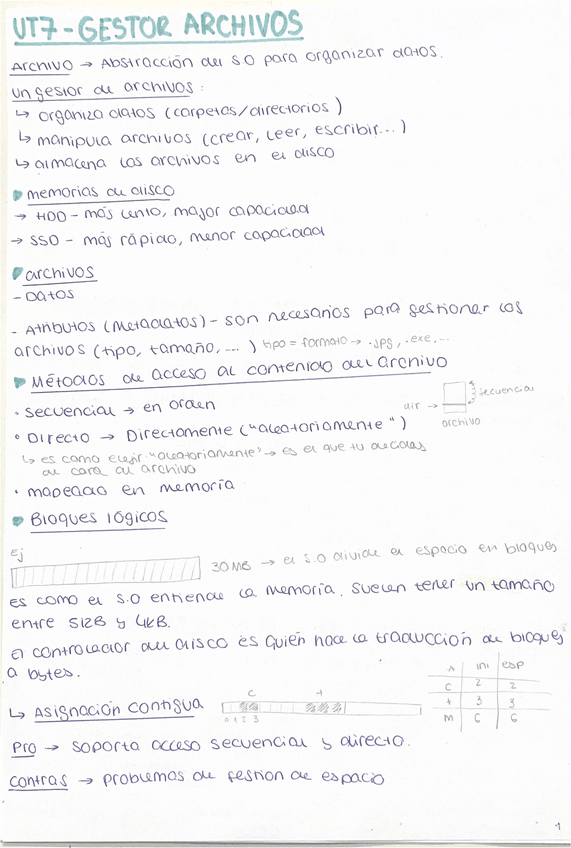 UT7 - GESTOR ARCHIVOS
Archivo → Abstracción del SO para organizar datos.
Un gestor de archivos:
↳ organiza datos (carpetas/directorios)
↳ manipula archivos (crear, leer, escribir...)
↳ almacena los archivos en el disco
memorias de disco
→ HDD - más lento, mayor capacidad
→ SSD - más rápido, menor capacidad
archivos
- Datos
- Atributos (Metadatos) - son necesarios para gestionar los
archivos (tipo, tamaño, ...) tipo = formato → .JPG, .exe...
Métodos de acceso al contenido del archivo
• secuencial → en orden
secuencial
• Directo → Directamente ("aleatoriamente")
dir →
archivo
↳ es como elegir "aleatoriamente" → es el que tu decidas
de cara al archivo
• mapeado en memoria
Bloques lógicos
ej
30MB → el S.O divide el espacio en bloques
Es como el S.O entiende la memoria. Suelen tener un tamaño
entre 512B y 4kB.
El controlador del disco es quién hace la traducción de bloques
a bytes.
↳ Asignación contigua
C t
0 1 2 3
A ini esp
C 2 2
t 3 3
M 6 6
Pro → soporta acceso secuencial y directo.
Contras → problemas de gestión de espacio
1